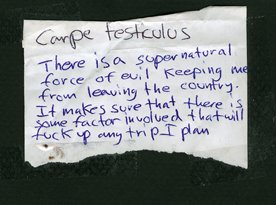 Carpe testiculus
There is a supernatural
force of evil keeping me
from leaving the country.
It makes sure that there is
some factor involved that will
fuck up any trip I plan